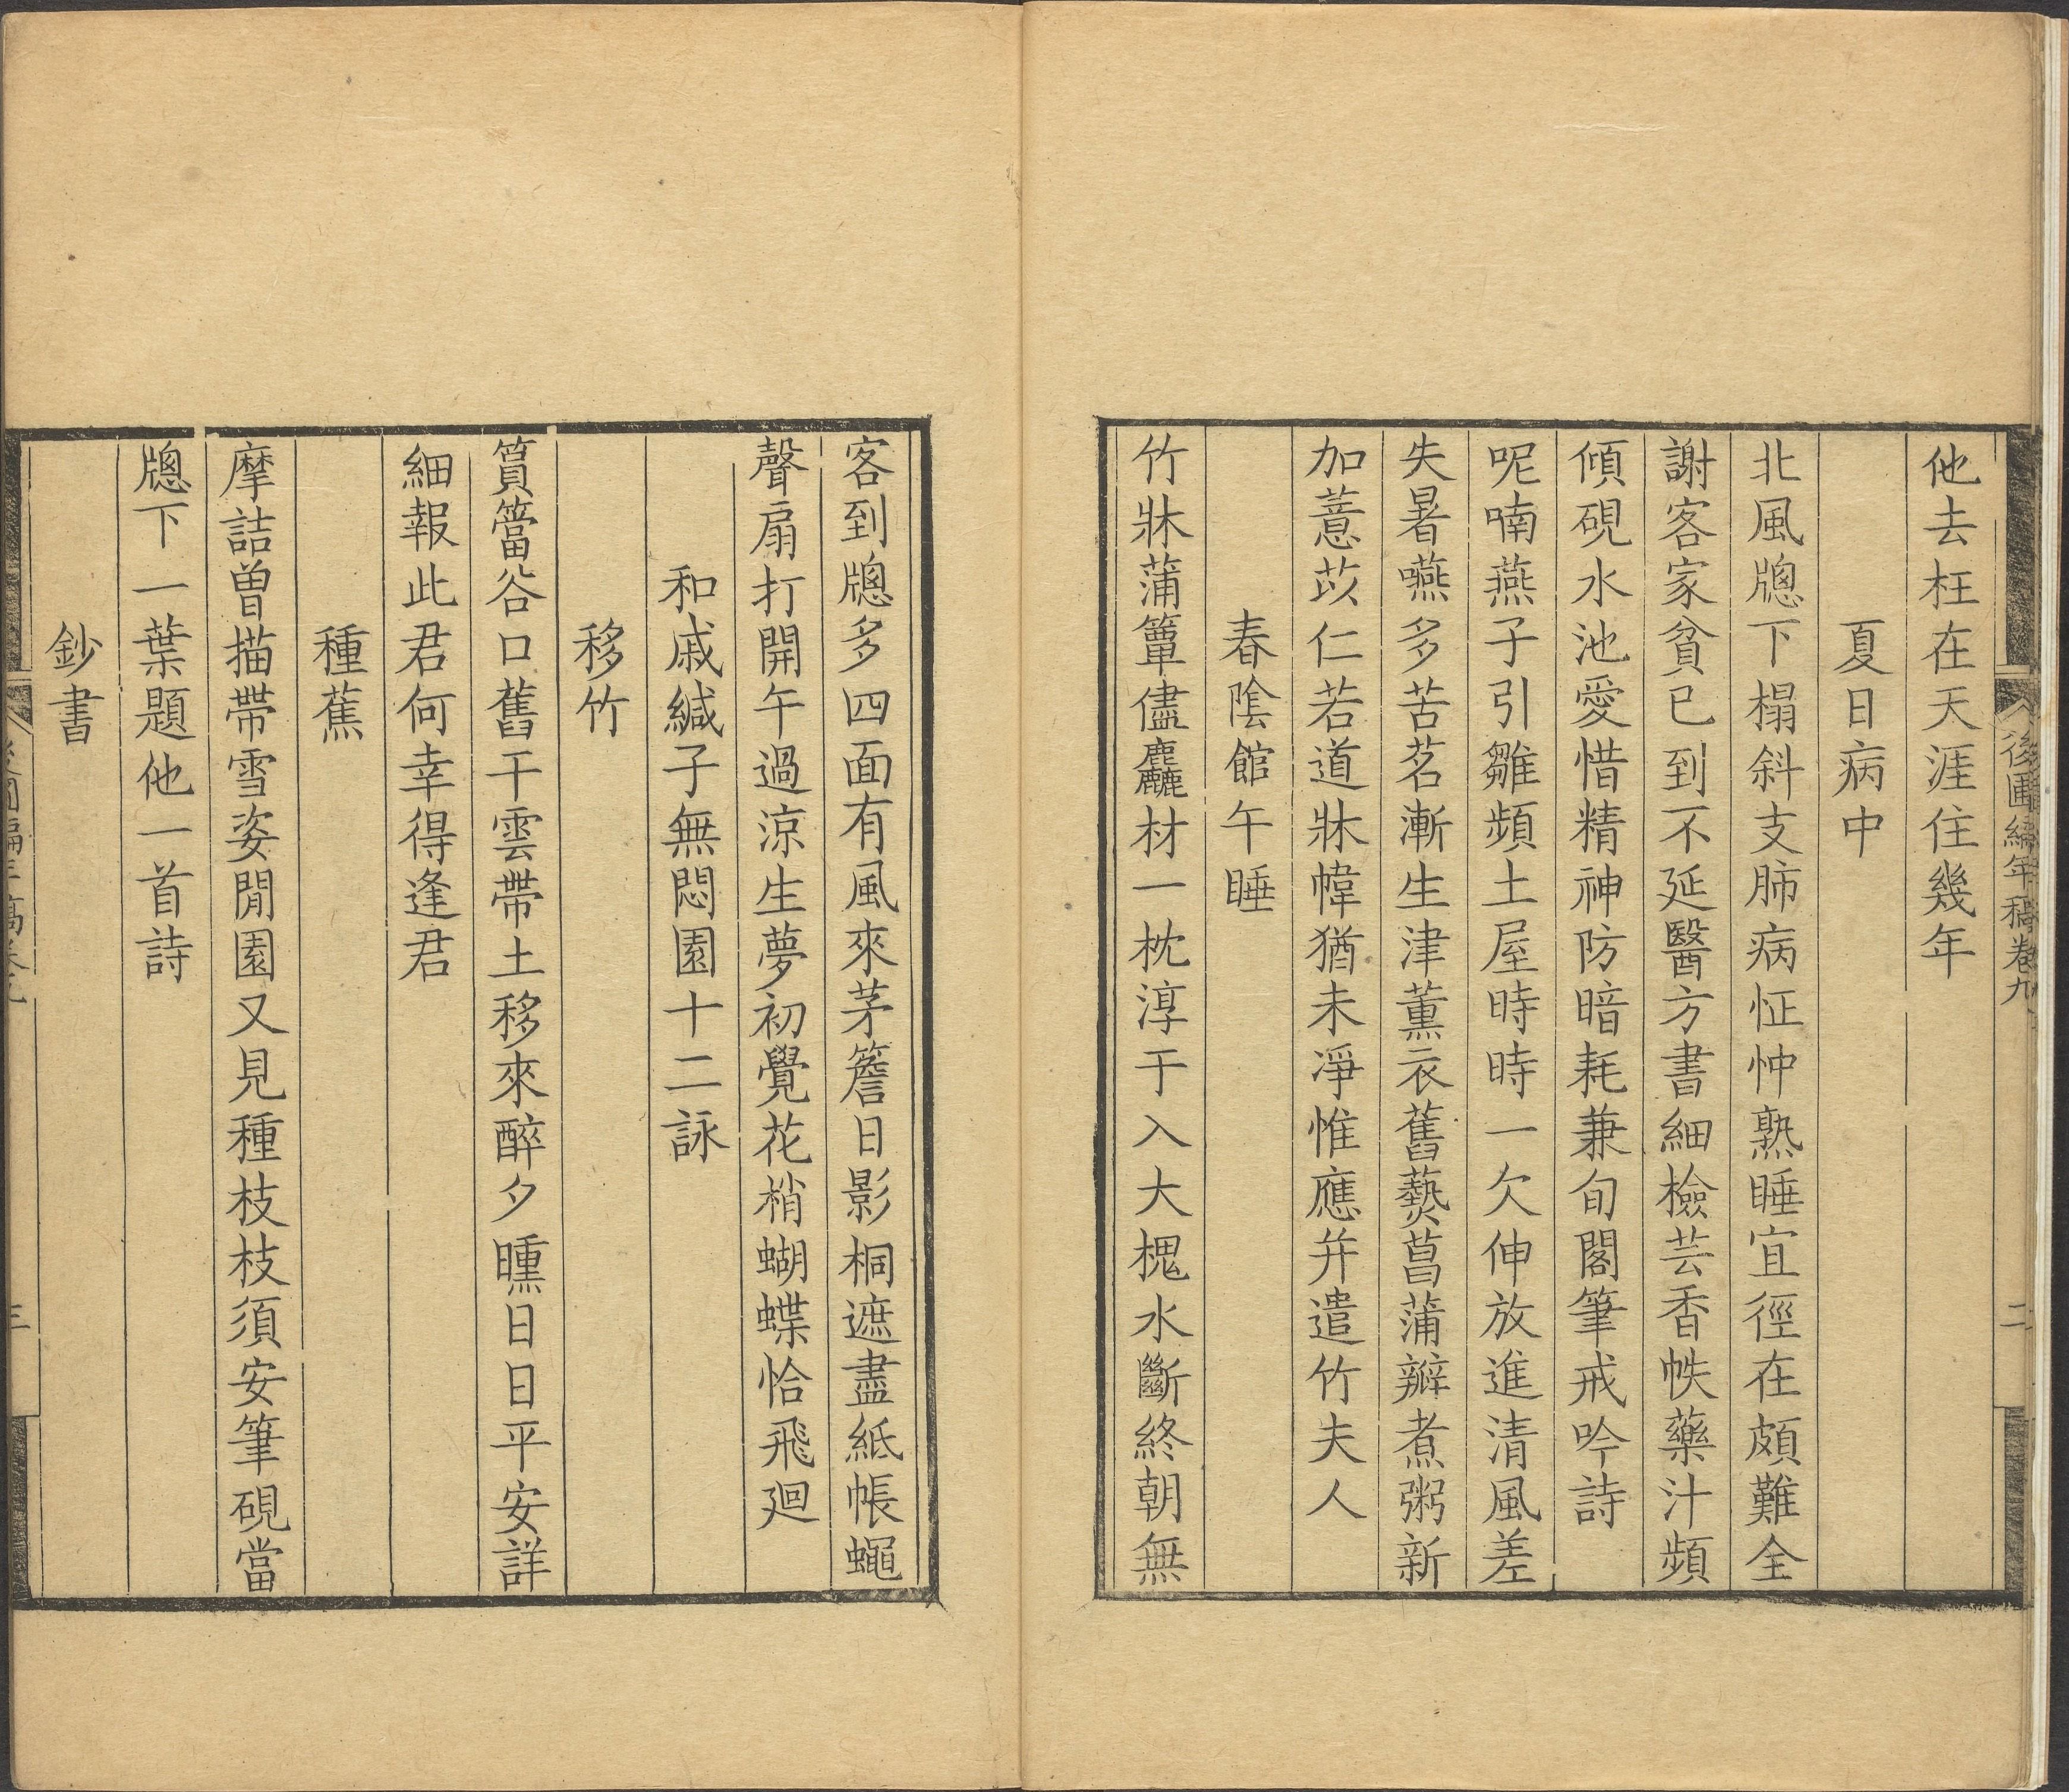 後圃編年稿卷九
二
他去枉在天涯住幾年
夏日病中
北風牕下榻斜支肺病怔忡熟睡宜徑在頗難全
謝客家貧已到不延醫方書細檢芸香帙藥汁頻
傾硯水池愛惜精神防暗耗兼旬閣筆戒吟詩
呢喃燕子引雛頻土屋時時一欠伸放進清風差
失暑嚥多苦茗漸生津薰衣舊爇菖蒲辦煮粥新
加薏苡仁若道牀幃猶未淨惟應并遣竹夫人
春陰館午睡
竹牀蒲簟儘麤材一枕淳于入大槐水斷終朝無
客到牕多四面有風來茅簷日影桐遮盡紙帳蠅
聲扇打開午過涼生夢初覺花梢蝴蝶恰飛廻
和戚緘子無悶園十二詠
移竹
篔簹谷口舊干雲帶土移來醉夕曛日日平安詳
細報此君何幸得逢君
種蕉
摩詰曽描帶雪姿閒園又見種枝枝須安筆硯當
牕下一葉題他一首詩
鈔書
三